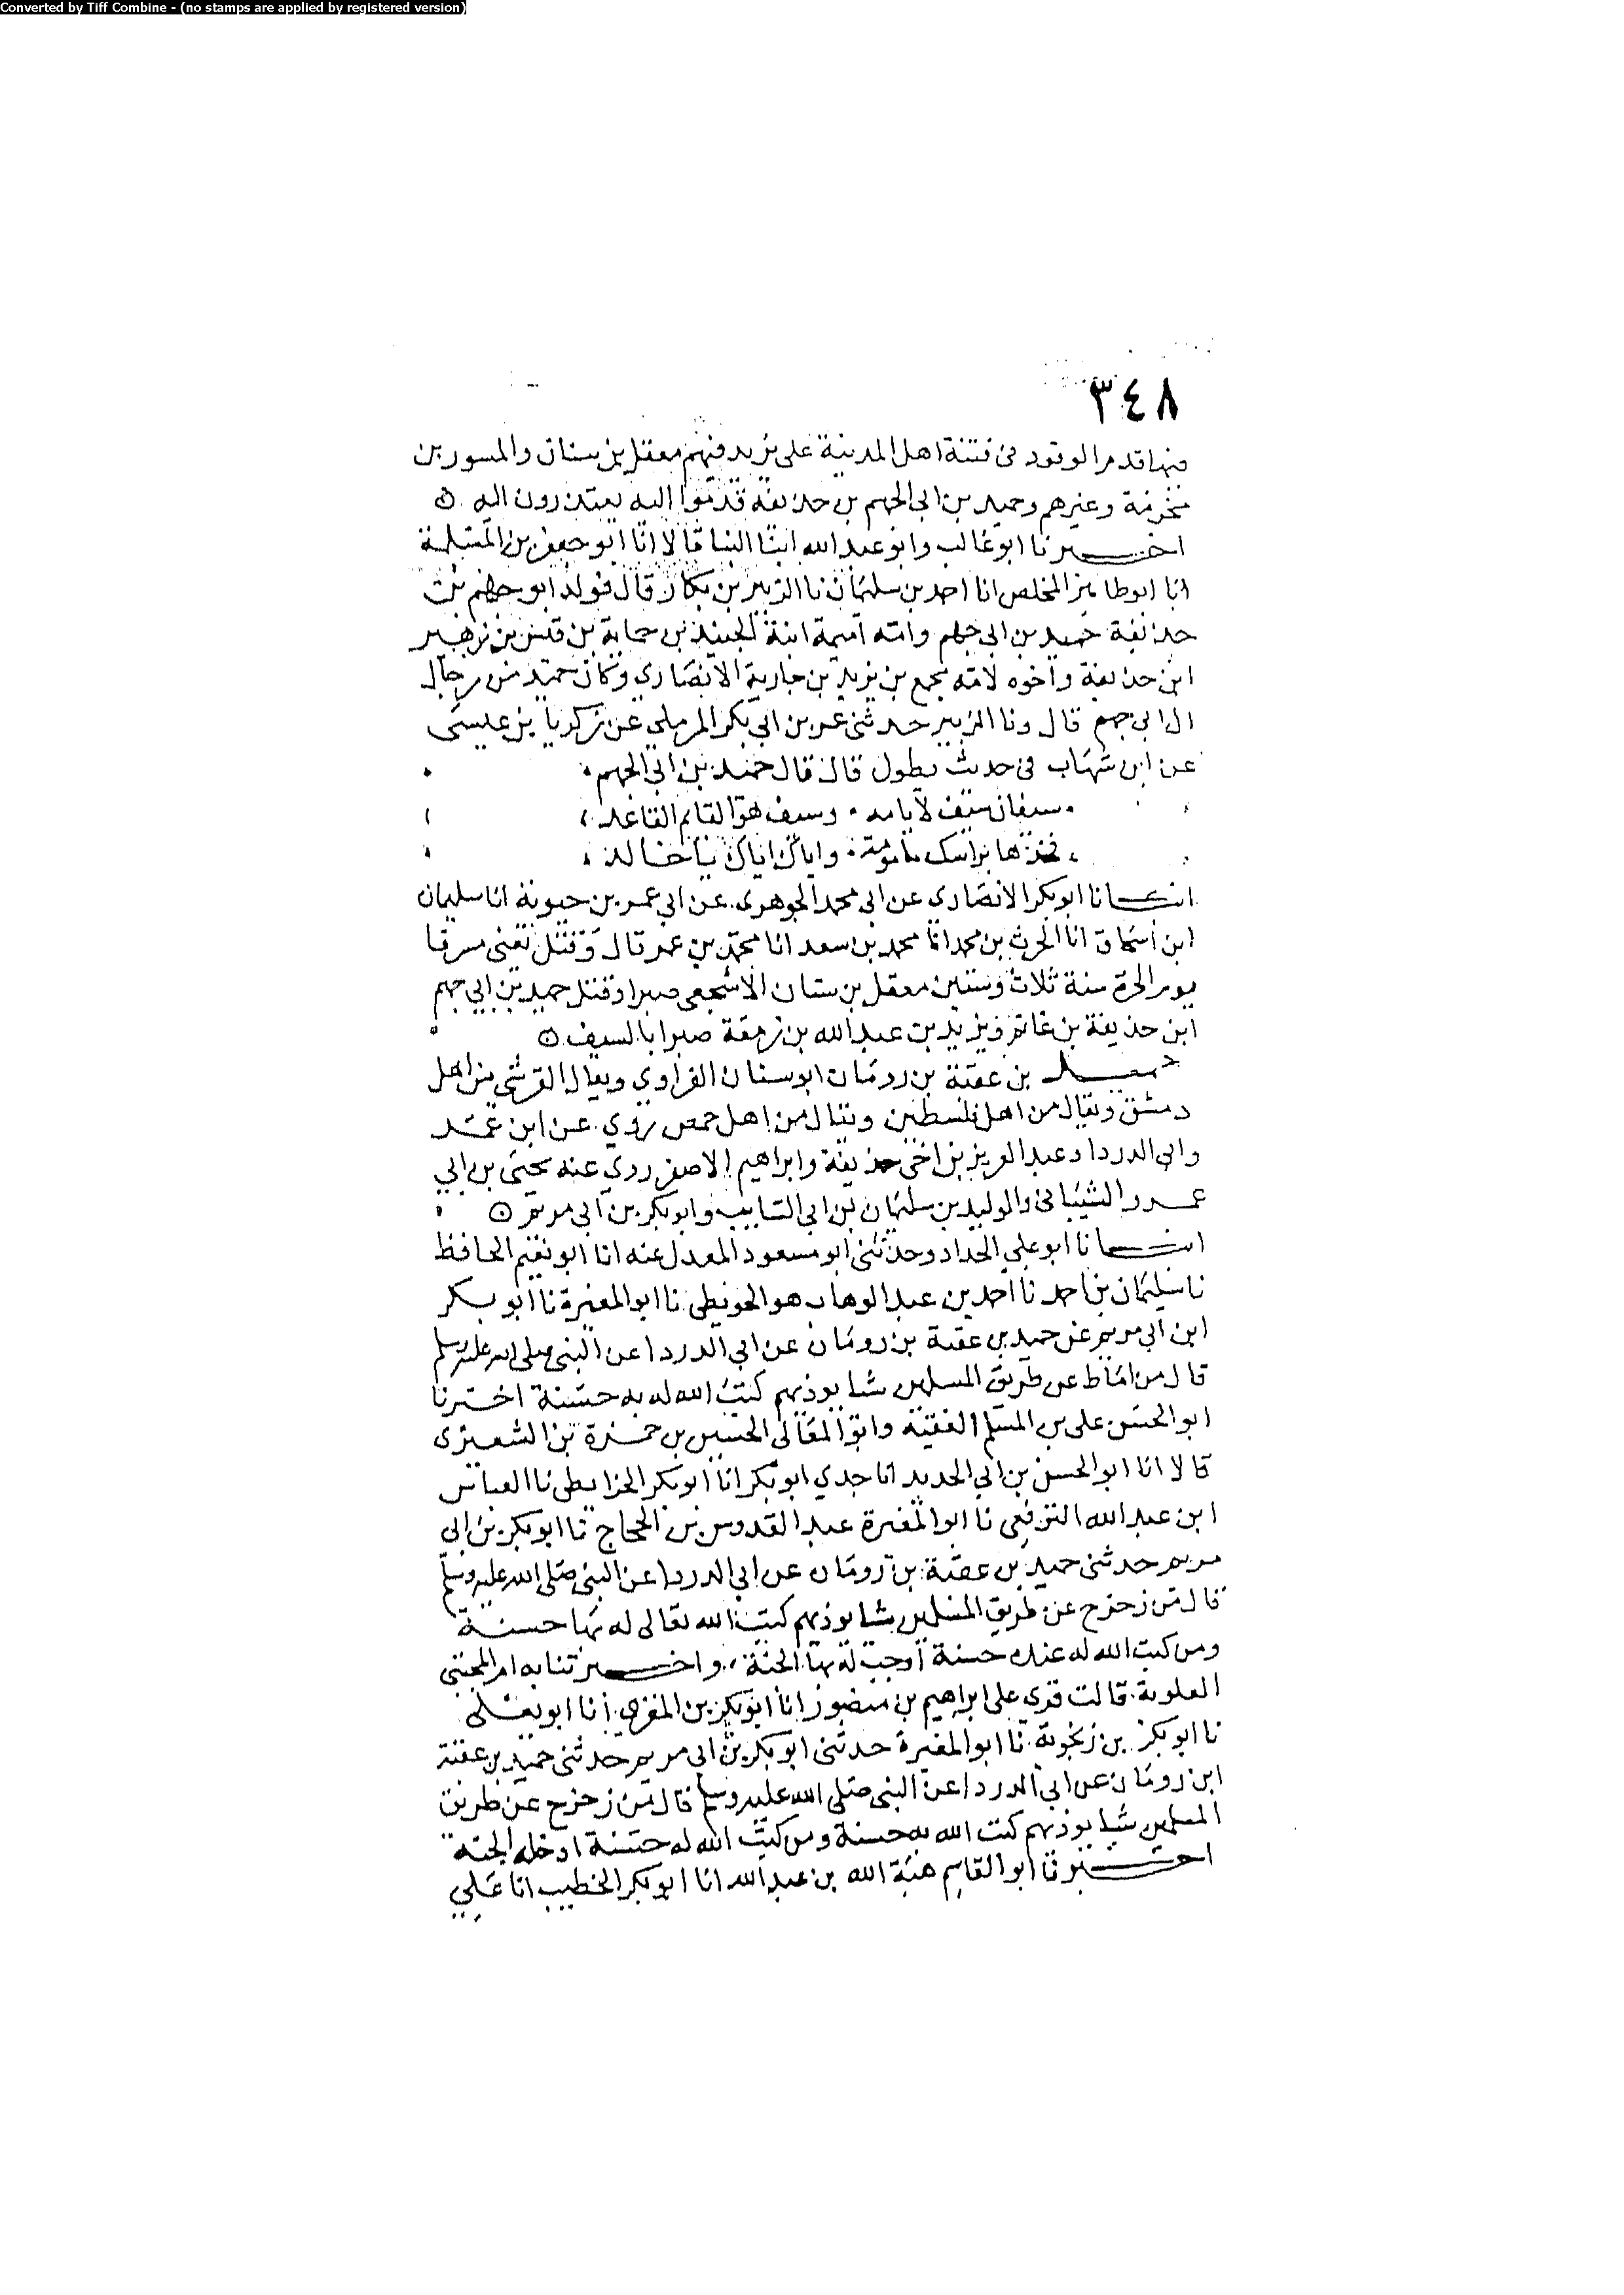 Converted by Tiff Combine - (no stamps are applied by registered version)
٣٤٨
فيما قدم الوفود في فتنة اهل المدينة على يزيد فيهم معقل بن سنان والمسور بن
مخرمة وغيرهم وحميد بن ابي الجهم بن حذيفة قدموا اليه يعتذرون اليه ۞
اخبرنا ابو غالب وابو عبد الله ابنا البنا قالا انا ابو جعفر بن المسلمة
انا ابو طاهر المخلص انا احمد بن سليمان نا الزبير بن بكار قال فولد ابو جهم بن
حذيفة حميد بن ابي جهم وامه اميمة ابنة الجنيد بن جمانة بن قيس بن زهير
ابن حذيفة واخوه لامه مجمع بن يزيد بن جارية الانصاري وكان حميد من رجال
ال ابي جهم قال ونا الزبير حدثني عمر بن ابي بكر المرملي عن زكريا بن عيسى
عن ابن شهاب في حديث يطول قال قال حميد بن ابي الجهم
سيفان سيف وسيف هو القايم القاعد
فخذها براسك مامومة واياك اياك يا خالد
انبانا ابو بكر الانصاري عن ابي محمد الجوهري عن ابي عمر بن حيوية انا سليمان
ابن اسحاق انا الحرث بن محمد انا محمد بن سعد انا محمد بن عمر قال وقتل يعني مسرفا
يوم الحرة سنة ثلاث وستين معقل بن سنان الاشجعي صبرا وقتل حميد بن ابي جهم
ابن حذيفة بن غانم ويزيد بن عبد الله بن زمعة صبرا بالسيف ۞
حميد بن عقبة بن رومان ابو سنان الفزاوي ويقال القرشي من اهل
دمشق ويقال من اهل فلسطين ويقال من اهل حمص روي عن ابن عمر
وابي الدردا وعبد العزيز بن اخي حذيفة وابراهيم الاصفر روي عنه يحيى بن ابي
عمرو الشيباني والوليد بن سليمان بن ابي السايب وابو بكر بن ابي مريم ۞
انبانا ابو علي الحداد وحدثني ابو مسعود المعدل عنه انا ابو نعيم الحافظ
نا سليمان بن احمد نا احمد بن عبد الوهاب هو الحوطي نا ابو المغيرة نا ابو بكر
ابن ابي مريم عن حميد بن عقبة بن رومان عن ابي الدردا عن النبي صلى الله عليه وسلم
قال من اماط عن طريق المسلمين شيا يوذيهم كتب الله له به حسنة اخبرنا
ابو الحسن علي بن المسلم الفقيه وابو المعالي الحسين بن حمزة بن الشعيري
قالا انا ابو الحسن بن ابي الحديد انا جدي ابو بكر انا ابو بكر الخرايطي نا العباس
ابن عبد الله الترقفي نا ابو المغيرة عبد القدوس بن الحجاج نا ابو بكر بن ابي
مريم حدثني حميد بن عقبة بن رومان عن ابي الدردا عن النبي صلى الله عليه وسلم
قال من زحزح عن طريق المسلمين شيا يوذيهم كتب الله تعالى له بها حسنة
ومن كتب الله له عنده حسنة اوجب له بها الجنة واخبرتنا به ام المجتبى
العلوية قالت قرئ على ابراهيم بن منصور انا ابو بكر بن المقري انا ابو يعلى
نا ابو بكر بن زنجوية نا ابو المغيرة حدثني ابو بكر بن ابي مريم حدثني حميد بن عقبة
ابن رومان عن ابي الدردا عن النبي صلى الله عليه وسلم قال من زحزح عن طريق
المسلمين شيا يوذيهم كتب الله له حسنة ومن كتب الله له حسنة ادخله الجنة
اخبرنا ابو القاسم هبة الله بن عبد الله انا ابو بكر الخطيب انا علي